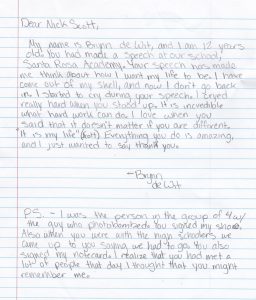 Dear Nick Scott,
My name is Brynn de Wit, and I am 12 years
old. You had made a speech at our school,
Santa Rosa Academy. Your speech has made
me think about how I want my life to be. I have
come out of my shell, and now I don't go back
in. I started to cry during your speech. I cryed
really hard when you stood up. It is incredible
what hard work can do. I love when you
said that it doesn't matter if you are different.
"It is my life" (Scott). Everything you do is amazing,
and I just wanted to say thank you.
~Brynn
de Wit
P.S. - I was the person in the group of
who photobombed. You signed my shoe.
Also when you were with the high schoolers we
came up to you saying we had to go. You also
signed my notecard. I realize that you had met a
lot of people that day I thought that you might
remember me.